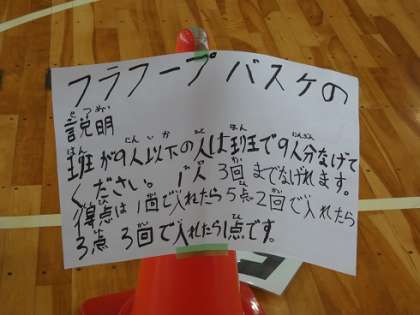 フラフープバスケの
説明
班が9人以下の人は班で9人分なげて
ください。1人3回までなげれます。
得点は1回で入れたら5点2回で入れたら
3点 3回で入れたら1点です。